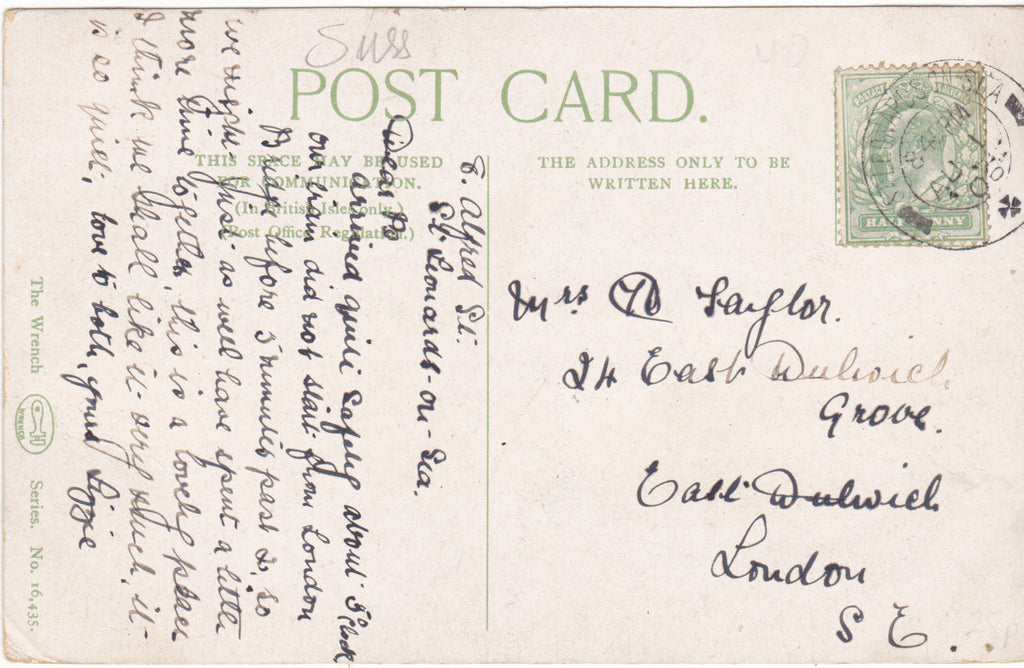 Suss
POST CARD.
THIS SPACE MAY BE USED
FOR COMMUNICATION.
(In British Isles only.)
(Post Office Regulation.)
THE ADDRESS ONLY TO BE
WRITTEN HERE.
POSTAGE
HALFPENNY
ST LEONARDS ON SEA
AU
Mrs Taylor.
24 East Dulwich
Grove.
East Dulwich
London
S E.
6. Alfred St.
St Leonards-on-Sea.
Dear
Arrived quite safely about 5 Clock
our train did not start from London
Bridge before 3 minutes past 2, so
we might just as well have spent a little
more time together, this is a lovely place
I think we shall like it very much, it
is so quiet, love to both, yours Lizzie
The Wrench
WRENCH
Series. No. 16,435.